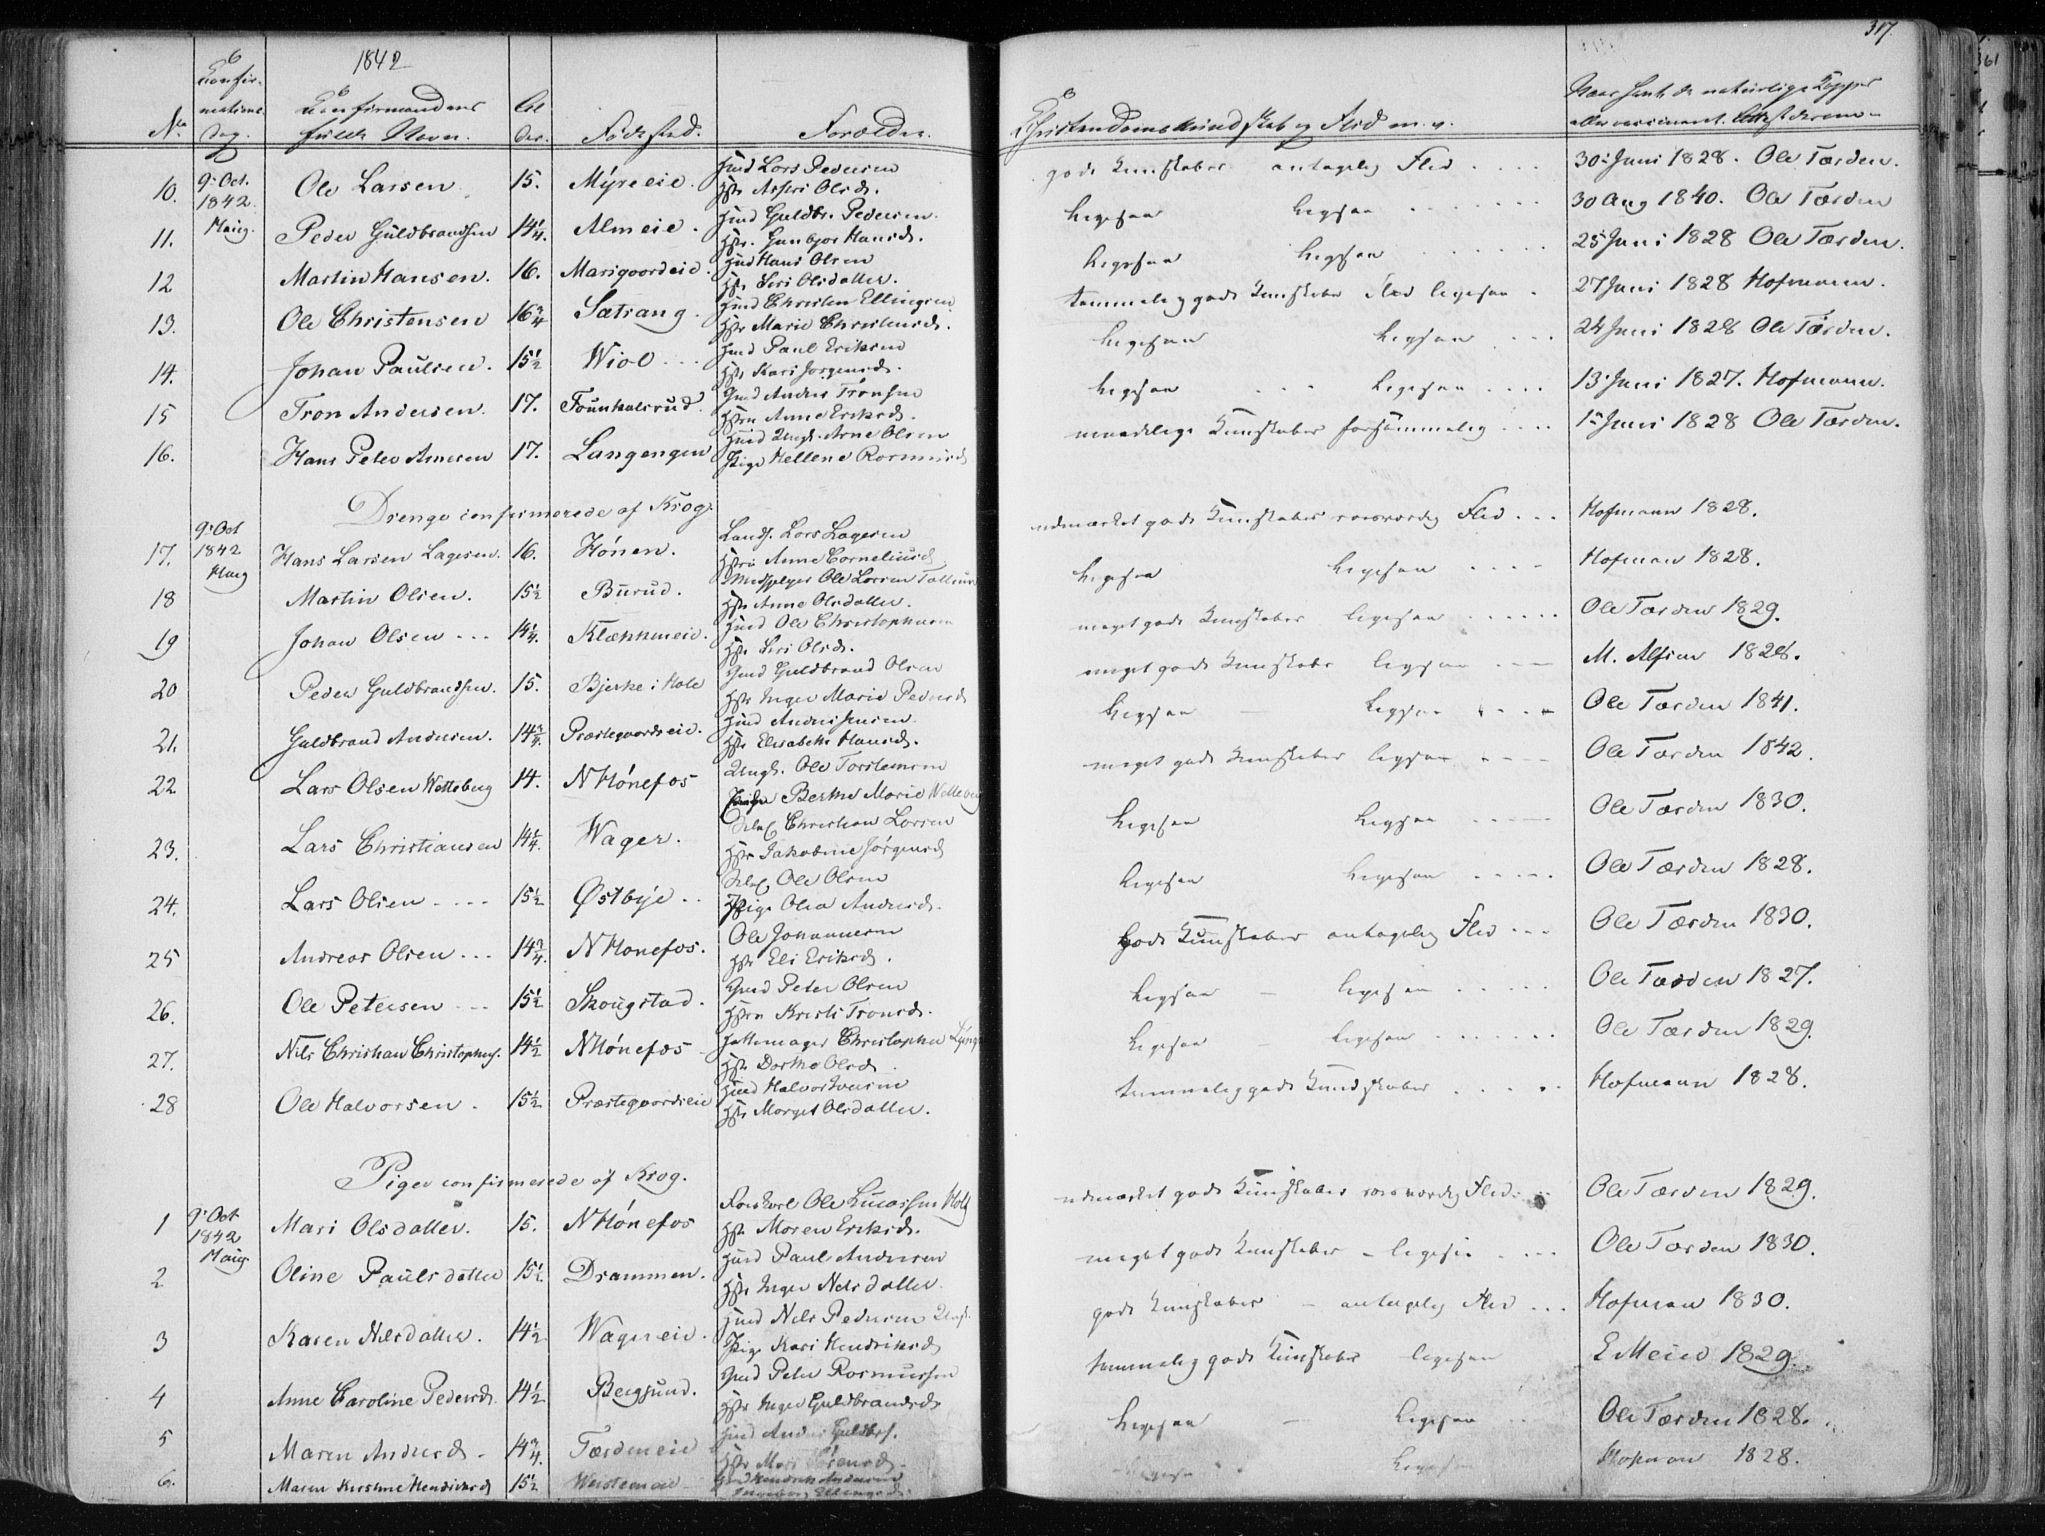 1842
317.
No. Confirmations Dag. Confirmandens fulde Navn. Alder. Fødested. Forældre. Christendomskundskab og Flid m. v. Naar havt de naturlige Kopper eller vaccineret
10. 9. Oct. 1842. Haug. Ole Larsen 15. Myreeie. Huusmd Lars Pedersen Hstr. Olsd. gode Kundskaber antagelig Flid .... 30. Juni 1828. Ole Tærden.
11. Peder Guldbrandsen 14 1/4 Almeie. Guldbr. Pedersen Hstr. Gunbjor Hansd. ligesaa ligesaa 30 Aug 1840. Ole Tærden
12 Martin Hansen. 16. Marigaardeie. Hans Olsen Hstr. Siri Olsdatter. ligesaa ligesaa 25 Juni 1828 Ole Tærden.
13. Ole Christensen 16 3/4 Sætrang. Christen Ellingsen Hstr Marie Christensd. temmelig gode Kundskaber Flid ligesaa. 27 Juni 1828 Hofmann.
14. Johan Paulsen. 15 1/2 Wiol ... Paul Eriksen Hstr Kari Jorgensd. ligesaa ligesaa 24 Juni 1828 Ole Tærden.
15 Tron Andersen. 17. Anders Tronsen Anne Eriksd. ligesaa ligesaa 13. Juni 1827. Hofmann.
16. Hans Peter Arnesen 17. Langengen Ungk. Arne Olsen Pige Hellene Rasmusd maadelige Kundskaber forsømmelig .... 1. Juni 1828 Ole Tærden.
Drenge confirmerede af Krog.
17. 9. Oct 1842 Haug Hans Larsen Lagesen. 16. Hønen. Lars Lagesen Anne Corneliusd udmærket gode Kundskaber roesværdig Flid ... Hofmann 1828.
18 Martin Olsen. 15 1/2 Burud. Ole Larsen Hstr Anne Olsdatter. ligesaa ligesaa .... Hofman 1828.
19 Johan Olsen ... 14 1/4. Klækkeneie. Ole Christophersen Hstr Siri Olsd. meget gode Kundskaber ligesaa Ole Tærden 1829.
20 Peder Guldbrandsen. 15. Bjerke i Hole Guldbrand Olsen Hstr Inger Marie Pedersd meget gode Kundskaber ligesaa M. Alfsen 1828.
21. Guldbrand Andersen. 14 3/4. Præstegaardseie. Anders Jensen Hstr Elisabeth Hansd. ligesaa ligesaa Ole Tærden 1841.
22 Lars Olsen Wetteberg 14. N Hønefos Ungk. Ole Torstensen Berthe Marie Wetteberg meget gode Kundskaber ligesaa Ole Tærden 1842.
23. Lars Christiansen 14 1/4 Wager. Christian Larsen Hstr Jakobine Jørgensd ligesaa ligesaa Ole Tærden 1830.
24. Lars Olsen .... 15 1/2 Østbye .. Ole Olsen Pige Olea Andersd. ligesaa ligesaa ..... Ole Tærden 1828.
25 Andreas Olsen ... 14 3/4. N Hønefos. Ole Johannesen Hstr Eli Eriksd. gode Kundskaber antagelig Flid ... Ole Tærden 1830.
26. Ole Petersen ... 15 1/2 Skougstad. Peter Olsen Kirsti Tronsd. ligesaa ligesaa ..... Ole Tærden 1827.
27. Nils Christian Christophers. 14 1/2 N Hønefos Christopher Hstr Dorthe Olsd ligesaa ligesaa Ole Tærden 1829.
28 Ole Halvorsen. 15 1/2 Præstegaardseie Halvor Iversen Hstr Marget Olsdatter. temmelig gode Kundskaber Hofmann 1828.
Piger confirmerede af Krog.
1 9. Oct 1842 Haug Mari Olsdatter. 15. N Hønefos Ole Lucassen Hstr Maren Eriksd. udmærket gode Kundskaber roesværdig Flid Ole Tærden 1829.
2 Oline Paulsdatter 15 1/2 Drammen. Paul Andersen Hstr Inger Nilsdatter. meget gode Kundskaber ligesaa .... Ole Tærden 1830.
3 Karen Nilsdatter. 14 1/2 Wagereie. Nils Pedersen Pige Kari Hendriksd gode Kundskaber antagelig Flid ... Hofman 1830.
4 Anne Caroline Pedersd. 14 1/2 Bergsund. Peter Rasmussen Hstr Inger Guldbrandsd temmelig gode Kundskaber ligesaa E Meier 1829.
5 Maren Andersd. 14 3/4. Tærdeneie Anders Guldbrs. Hstr Mari Sørensd. ligesaa ligesaa Ole Tærden 1828.
6. Maren Kirstine Hendriksd 15 1/2 Hendrik Andersen Ellingsd. ligesaa ligesaa Hofman 1828.